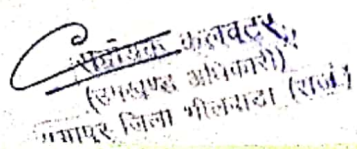 सहायक कलक्टर,
(उपखण्ड अधिकारी)
गंगापुर जिला भीलवाडा (राज०)